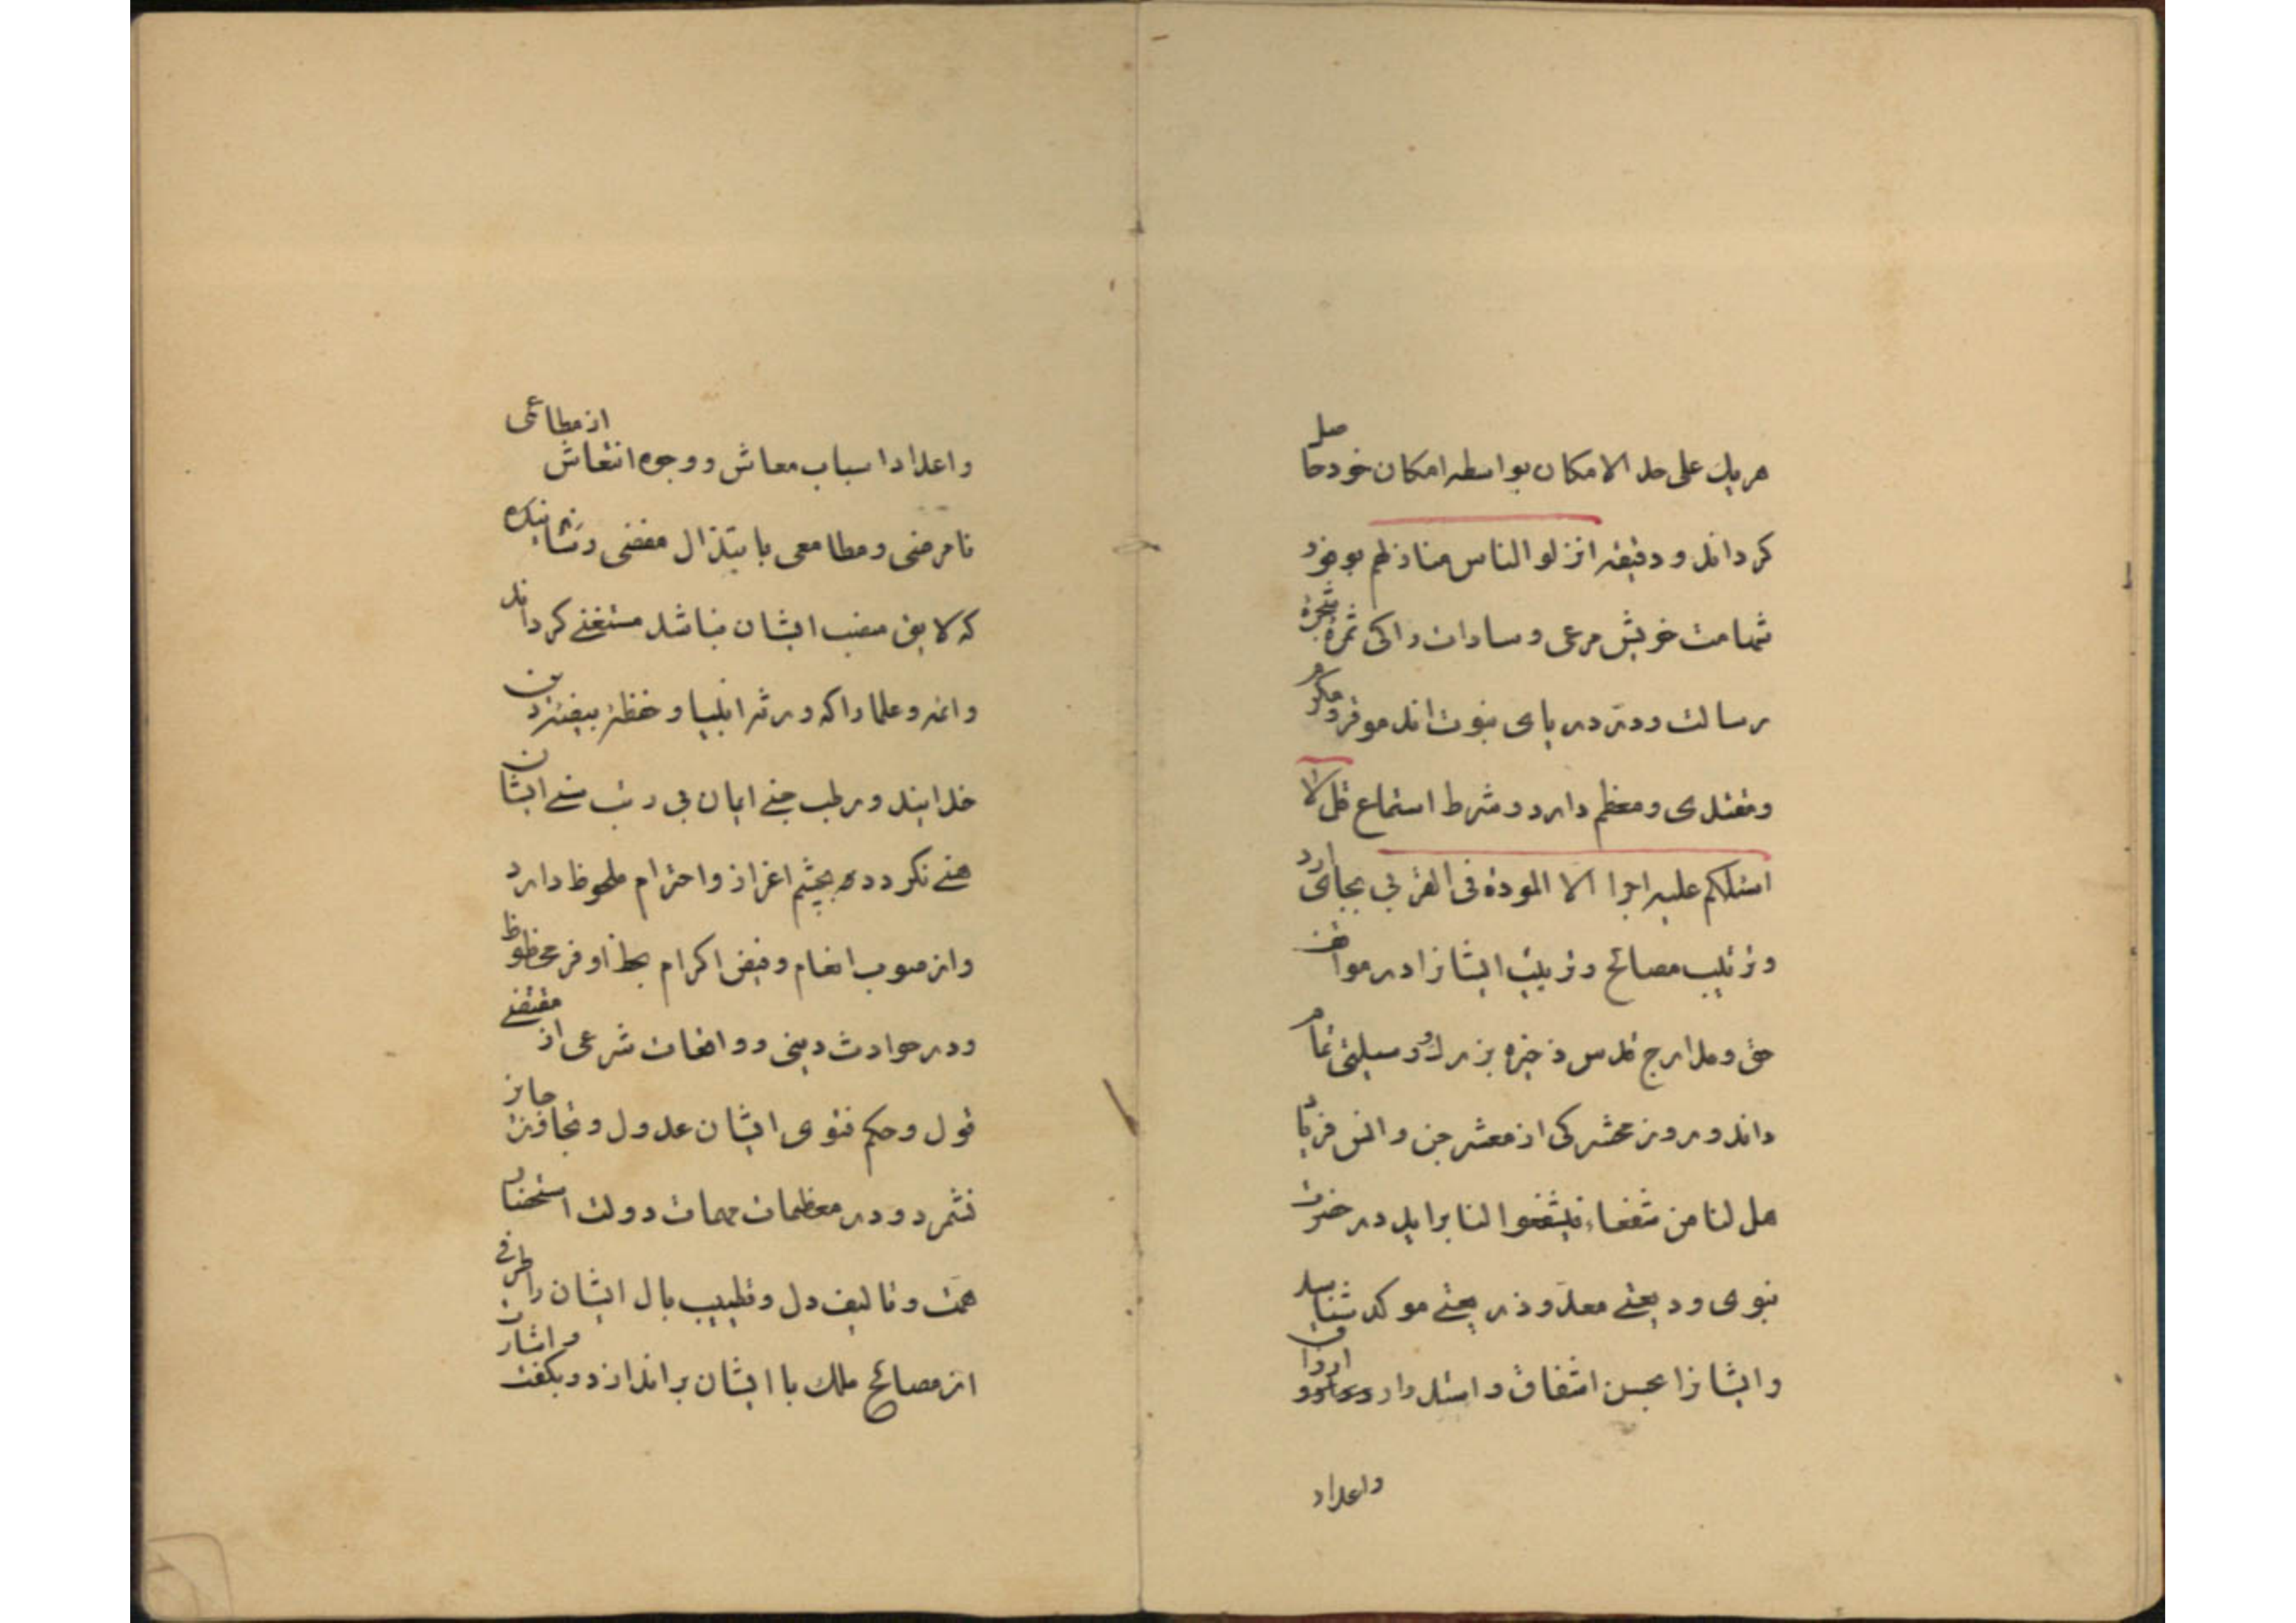 هریک علی حد الامکان بواسطه امکان خود حاصل
کرداند و دقیقه انزلوا الناس منازلهم بوفور
شهامت خویش مرعی و سادات را کی ثمرهٔ شجرهٔ
رسالت و درّ دریای نبوت اند موقر و مکرم
و مقتدی و معظم دارد و شرط استماع قل لا
اسئلکم علیه اجرا الا المودة فی القربی بجای آرد
و ترتیب مصالح و تربیت ایشانرا در مواقف
حق و مدارج قدس ذخیره بزرک و وسیلتی تمام
داند و روز محشر کی از معشر جن و انس فریاد
هل لنا من شفعاء فیشفعوا لنا براید در حضرت
نبوی ودیعتی معدّ و ذریعتی موکد شناسد
و ایشانرا بحسن اشفاق و ادرار ارزاق
واعداد
واعداد اسباب معاش و وجوه انتعاش از مطاعمی
نامرضی و مطامعی بابتذال مفضی و شاینکه
که لایق منصب ایشان نباشد مستغنی کرداند
و ائمه و علما را که ورثه انبیا و حفظهٔ بیضهٔ دین
خدایند و رطب جنی ایمان بی ریب سنی ایشان
هنی نکردد بچشم اعزاز و احترام ملحوظ دارد
و از صوب انعام و فیض اکرام بحظ اوفر محظوظ
و در حوادث دینی و واقعات شرعی از مقتضی
قول و حکم فتوی ایشان عدول و تجاوز جایز
نشمرد و در معظمات مهمات دولت استحضار
همت و تالیف دل و تطییب بال ایشان را طرفی
از مصالح ملک با ایشان براندازد و بکفت و اشارت